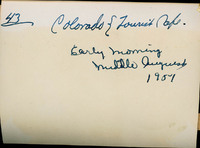 43 Colorado & Tourist Cafe.
Early Morning
Middle August
1957